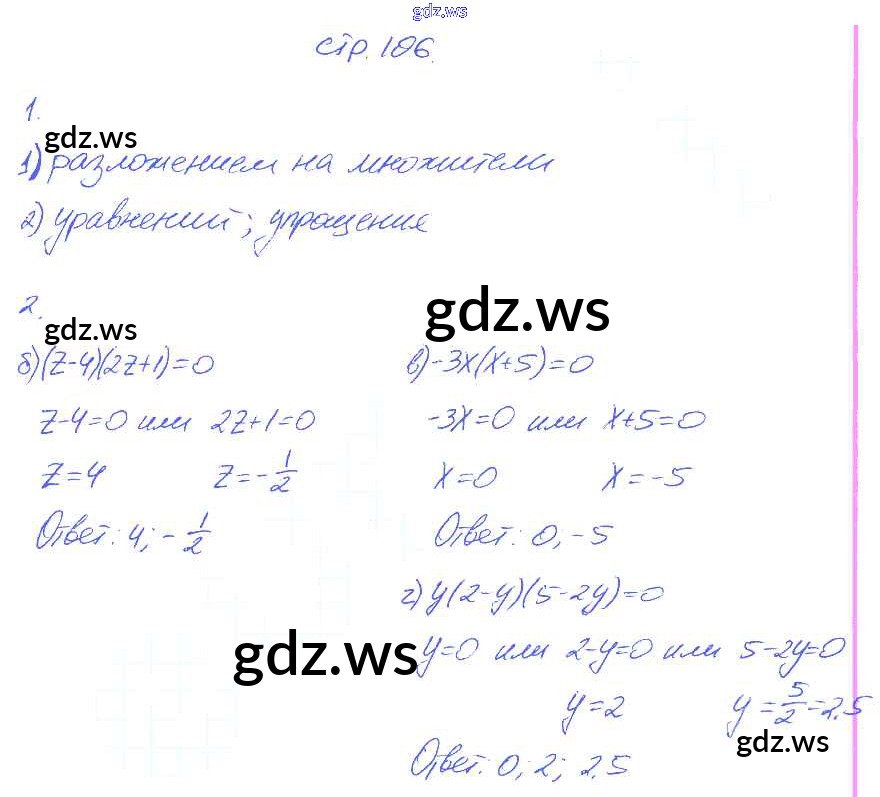 gdz.ws
стр. 106.
1.
gdz.ws
1) разложением на множители
2) уравнений; упрощения
gdz.ws
2.
gdz.ws
б) (z-4)(2z+1)=0
z-4=0 или 2z+1=0
z=4 z=-1/2
Ответ: 4; -1/2
в) -3x(x+5)=0
-3x=0 или x+5=0
x=0 x=-5
Ответ: 0; -5
г) y(2-y)(5-2y)=0
gdz.ws
y=0 или 2-y=0 или 5-2y=0
y=2 y=5/2=2,5
gdz.ws
Ответ: 0; 2; 2,5